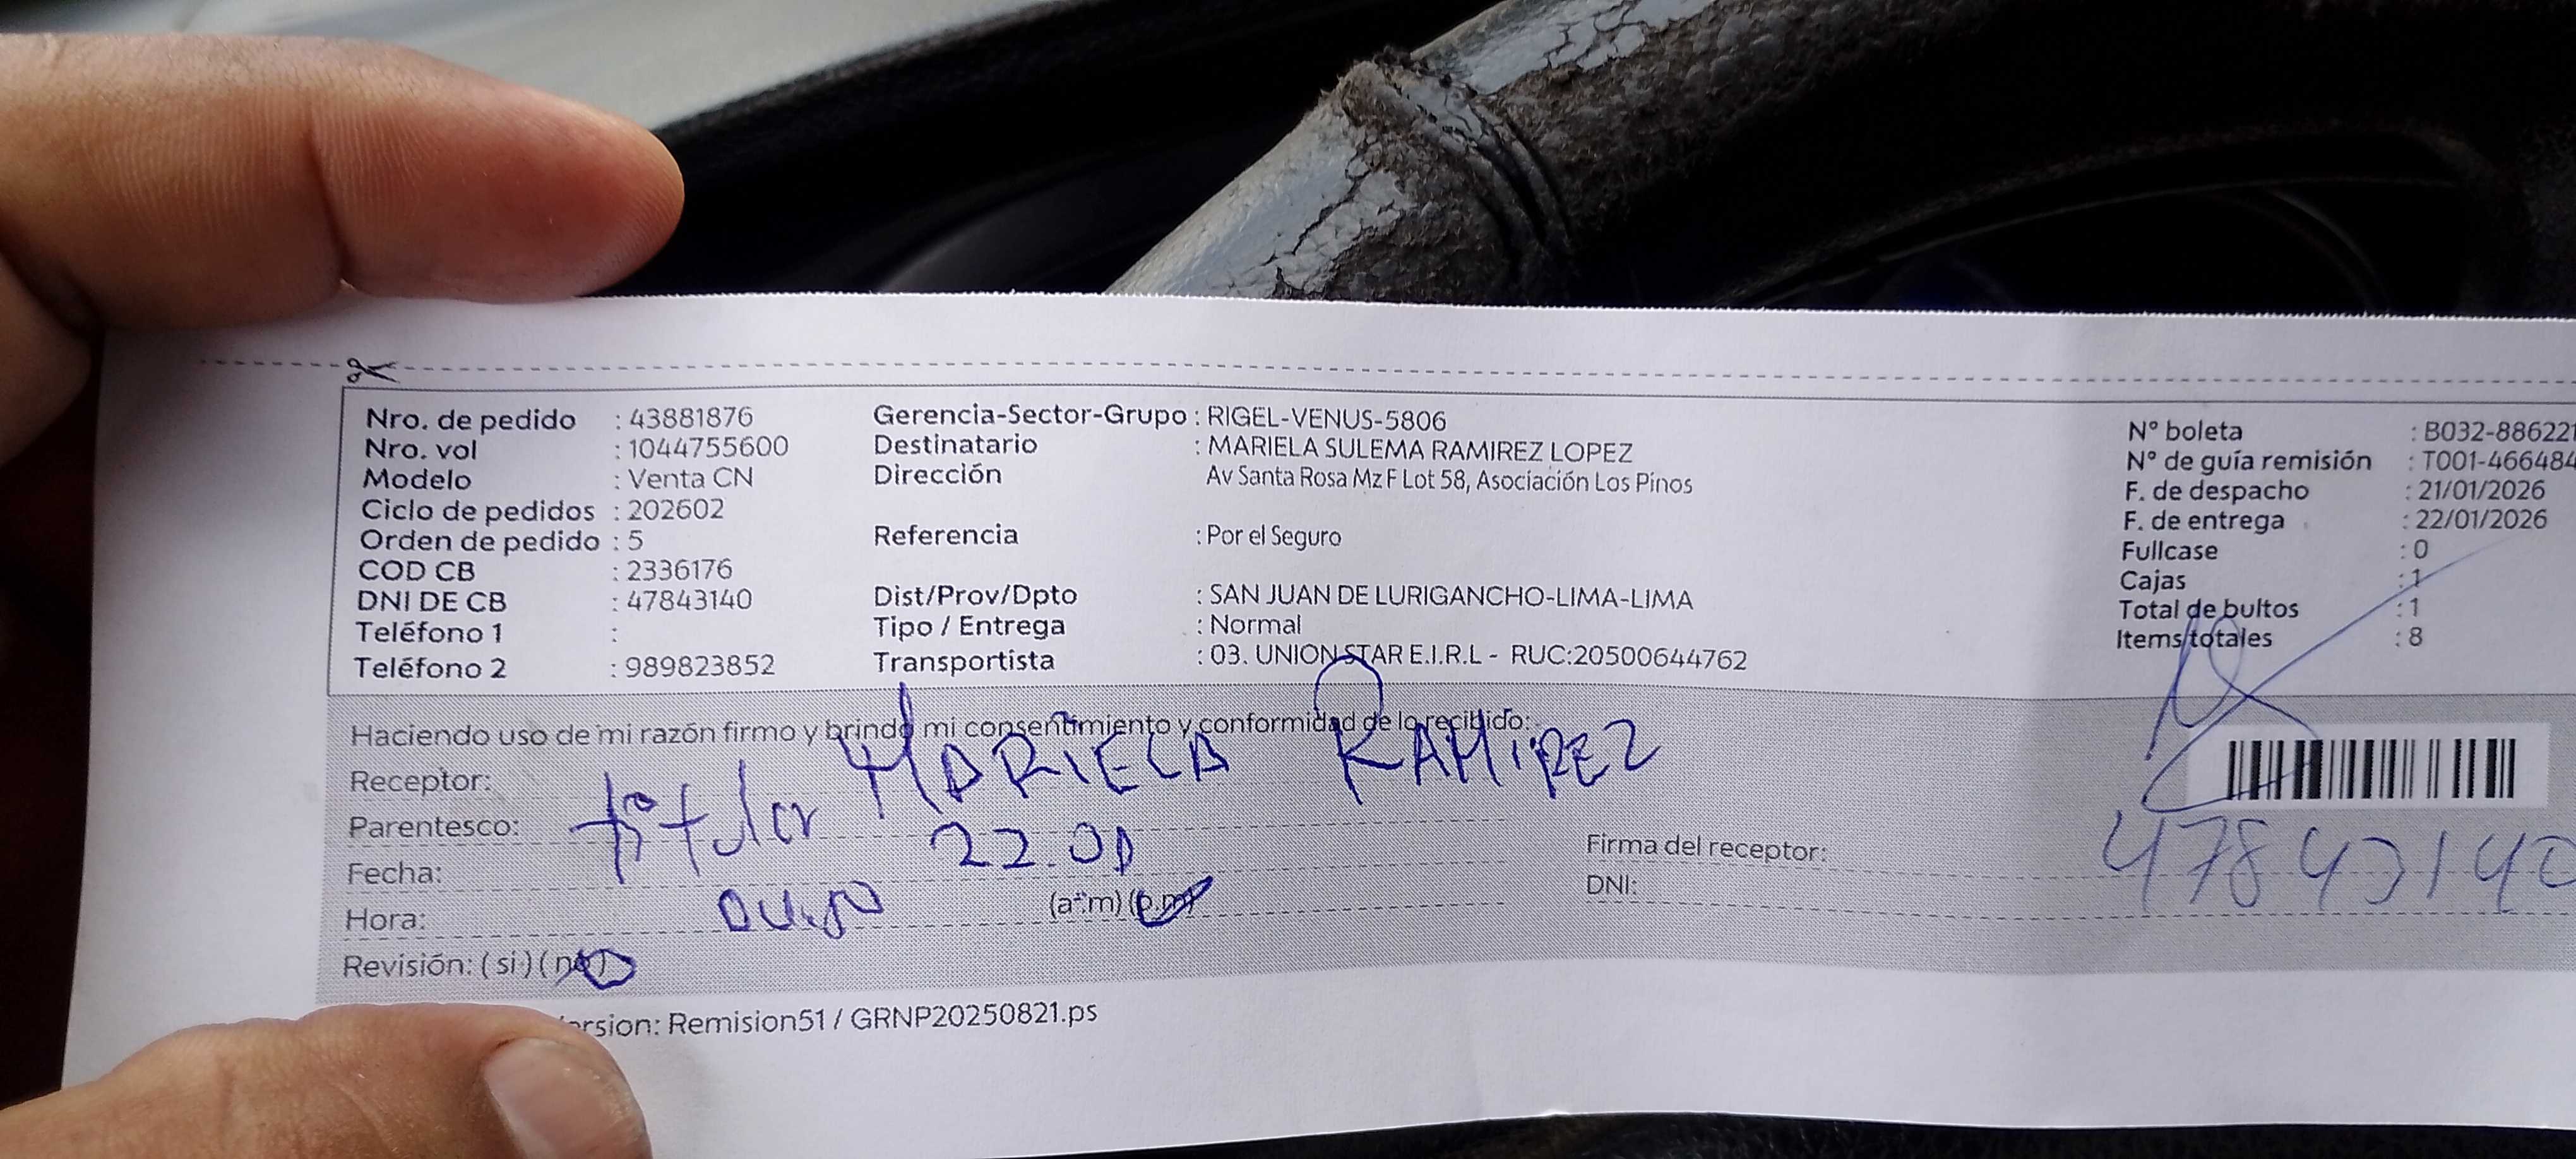 Nro. de pedido : 43881876
Nro. vol : 1044755600
Modelo : Venta CN
Ciclo de pedidos : 202602
Orden de pedido : 5
COD CB : 2336176
DNI DE CB : 47843140
Teléfono 1 :
Teléfono 2 : 989823852
Gerencia-Sector-Grupo : RIGEL-VENUS-5806
Destinatario : MARIELA SULEMA RAMIREZ LOPEZ
Dirección Av Santa Rosa Mz F Lot 58, Asociación Los Pinos
Referencia : Por el Seguro
Dist/Prov/Dpto : SAN JUAN DE LURIGANCHO-LIMA-LIMA
Tipo / Entrega : Normal
Transportista : 03. UNION STAR E.I.R.L - RUC:20500644762
N° boleta : B032-886221
N° de guía remisión : T001-466484
F. de despacho : 21/01/2026
F. de entrega : 22/01/2026
Fullcase : 0
Cajas : 1
Total de bultos : 1
Items totales : 8
Haciendo uso de mi razón firmo y brindo mi consentimiento y conformidad de lo recibido:
Receptor: MARIELA RAMIREZ
Parentesco: titular
Fecha: 22
Hora: (a.m) (p.m)
Revisión: ( si ) ( no )
Firma del receptor:
DNI: 47843140
ersion: Remision51 / GRNP20250821.ps